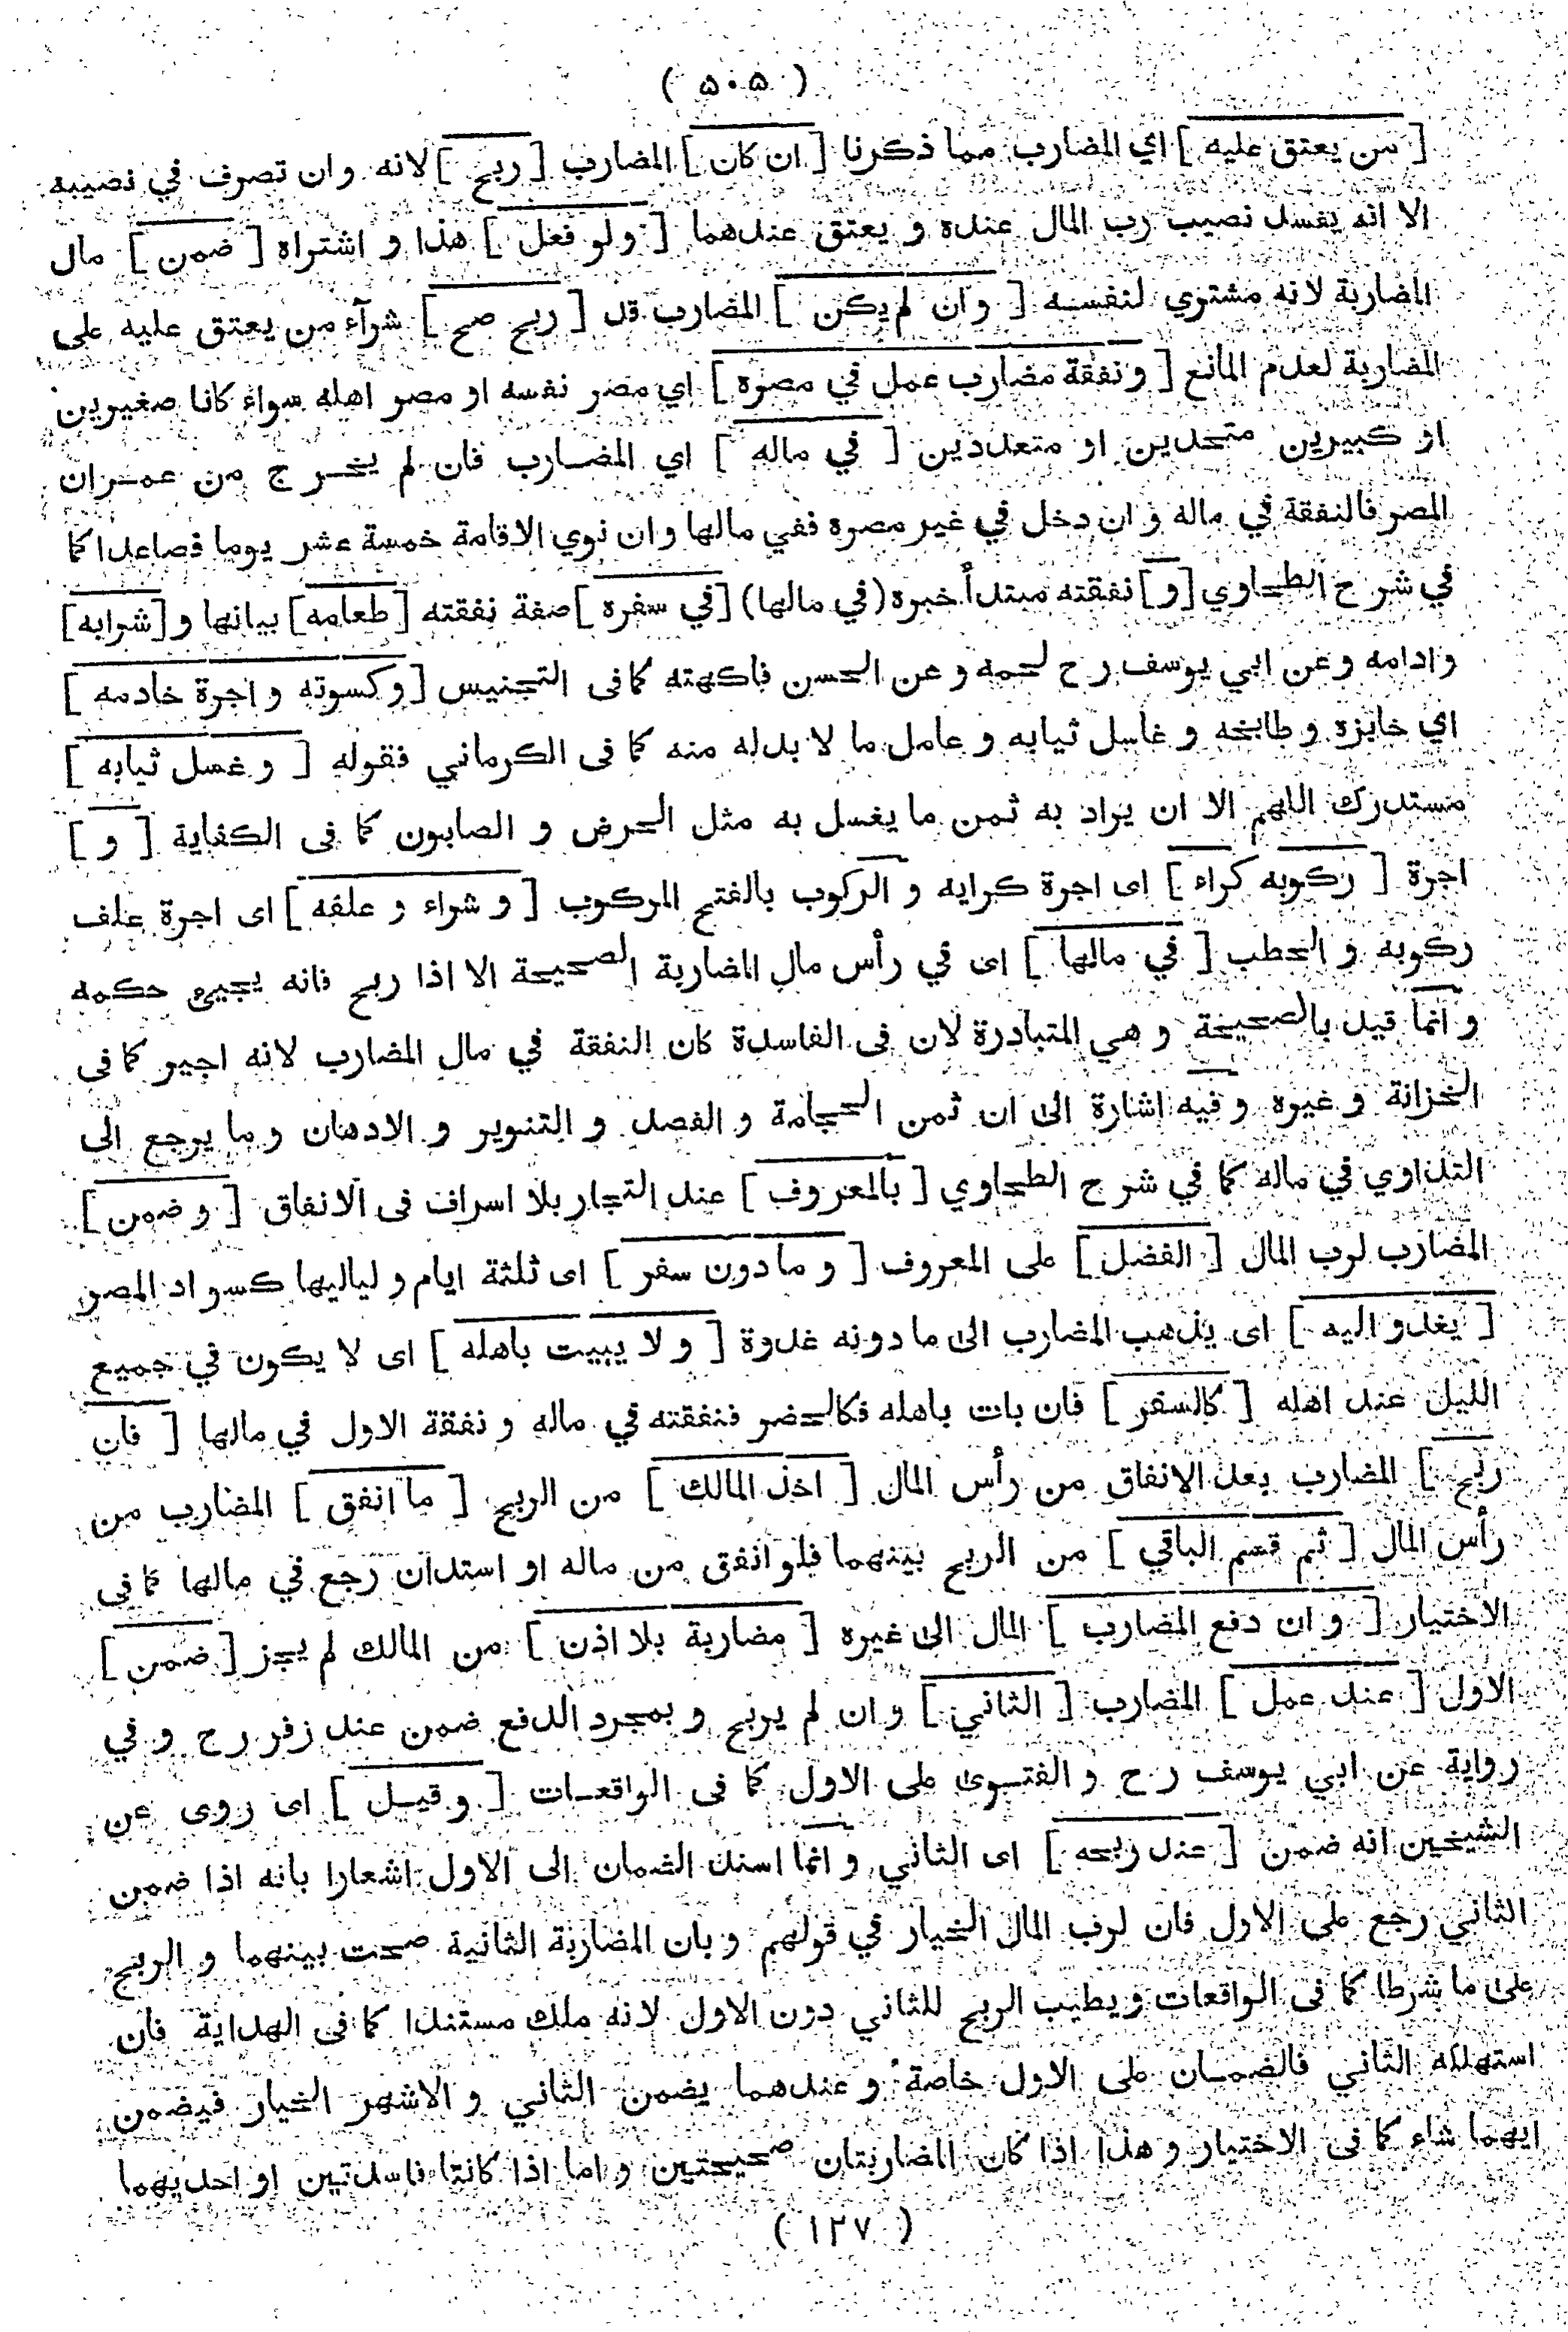 ( ٥٠٥ )
[ من يعتق عليه ] اي المضارب مما ذكرنا [ ان كان ] المضارب [ ربح ] لانه و ان تصرف في نصيبه
الا انه يفسد نصيب رب المال عنده و يعتق عندهما [ ولو فعل ] هذا و اشتراه [ ضمن ] مال
المضاربة لانه مشتري لنفسه [ و ان لم يكن ] المضارب قد [ ربح صح ] شرآء من يعتق عليه على
المضاربة لعدم المانع [ و نفقة مضارب عمل في مصره ] اي مصر نفسه او مصر اهله سواء كانا صغيرين
او كبيرين متحدين او متعددين [ في ماله ] اي المضارب فان لم يخرج من عمران
المصر فالنفقة في ماله و ان دخل في غير مصره ففي مالها و ان نوي الاقامة خمسة عشر يوما فصاعدا كما
في شرح الطحاوي [ و ] نفقته مبتدأ خبره ( في مالها ) [ في سفره ] صفة نفقته [ طعامه ] بيانها و [ شرابه ]
و ادامه و عن ابي يوسف رح لحمه و عن الحسن فاكهته كما فى التجنيس [ و كسوته و اجرة خادمه ]
اي خابزه و طابخه و غاسل ثيابه و عامل ما لا بد له منه كما فى الكرماني فقوله [ و غسل ثيابه ]
مستدرك اللهم الا ان يراد به ثمن ما يغسل به مثل الحرض و الصابون كما فى الكفاية [ و ]
اجرة [ ركوبه كراء ] اى اجرة كرايه و الركوب بالفتح المركوب [ و شراء و علفه ] اى اجرة علف
ركوبه و الحطب [ في مالها ] اى في رأس مال المضاربة الصحيحة الا اذا ربح فانه يجيء حكمه
و انما قيد بالصحيحة و هي المتبادرة لان فى الفاسدة كان النفقة في مال المضارب لانه اجير كما فى
الخزانة و غيره و فيه اشارة الى ان ثمن الحجامة و الفصد و التنوير و الادهان و ما يرجع الى
التداوي في ماله كما في شرح الطحاوي [ بالمعروف ] عند التجار بلا اسراف فى الانفاق [ و ضمن ]
المضارب لرب المال [ الفضل ] على المعروف [ و ما دون سفر ] اى ثلثة ايام و لياليها كسواد المصر
[ يغدو اليه ] اى يذهب المضارب الى ما دونه غدوة [ و لا يبيت باهله ] اى لا يكون في جميع
الليل عند اهله [ كالسفر ] فان بات باهله فكالحضر فنفقته في ماله و نفقة الاول في مالها [ فان
ربح ] المضارب بعد الانفاق من رأس المال [ اخذ المالك ] من الربح [ ما انفق ] المضارب من
رأس المال [ ثم قسم الباقي ] من الربح بينهما فلو انفق من ماله او استدان رجع في مالها كما فى
الاختيار [ و ان دفع المضارب ] المال الى غيره [ مضاربة بلا اذن ] من المالك لم يجز [ ضمن ]
الاول [ عند عمل ] المضارب [ الثاني ] و ان لم يربح و بمجرد الدفع ضمن عند زفر رح و في
رواية عن ابي يوسف رح و الفتوى على الاول كما فى الواقعات [ و قيل ] اى روى عن
الشيخين انه ضمن [ عند ربحه ] اى الثاني و انما اسند الضمان الى الاول اشعارا بانه اذا ضمن
الثاني رجع على الاول فان لرب المال الخيار في قولهم و بان المضاربة الثانية صحت بينهما و الربح
على ما شرطا كما فى الواقعات و يطيب الربح للثاني دون الاول لانه ملك مستندا كما فى الهداية فان
استهلكه الثاني فالضمان على الاول خاصة و عندهما يضمن الثاني و الاشهر الخيار فيضمن
ايهما شاء كما فى الاختيار و هذا اذا كان المضاربتان صحيحتين و اما اذا كانتا فاسدتين او احديهما
( ١٢٧ )